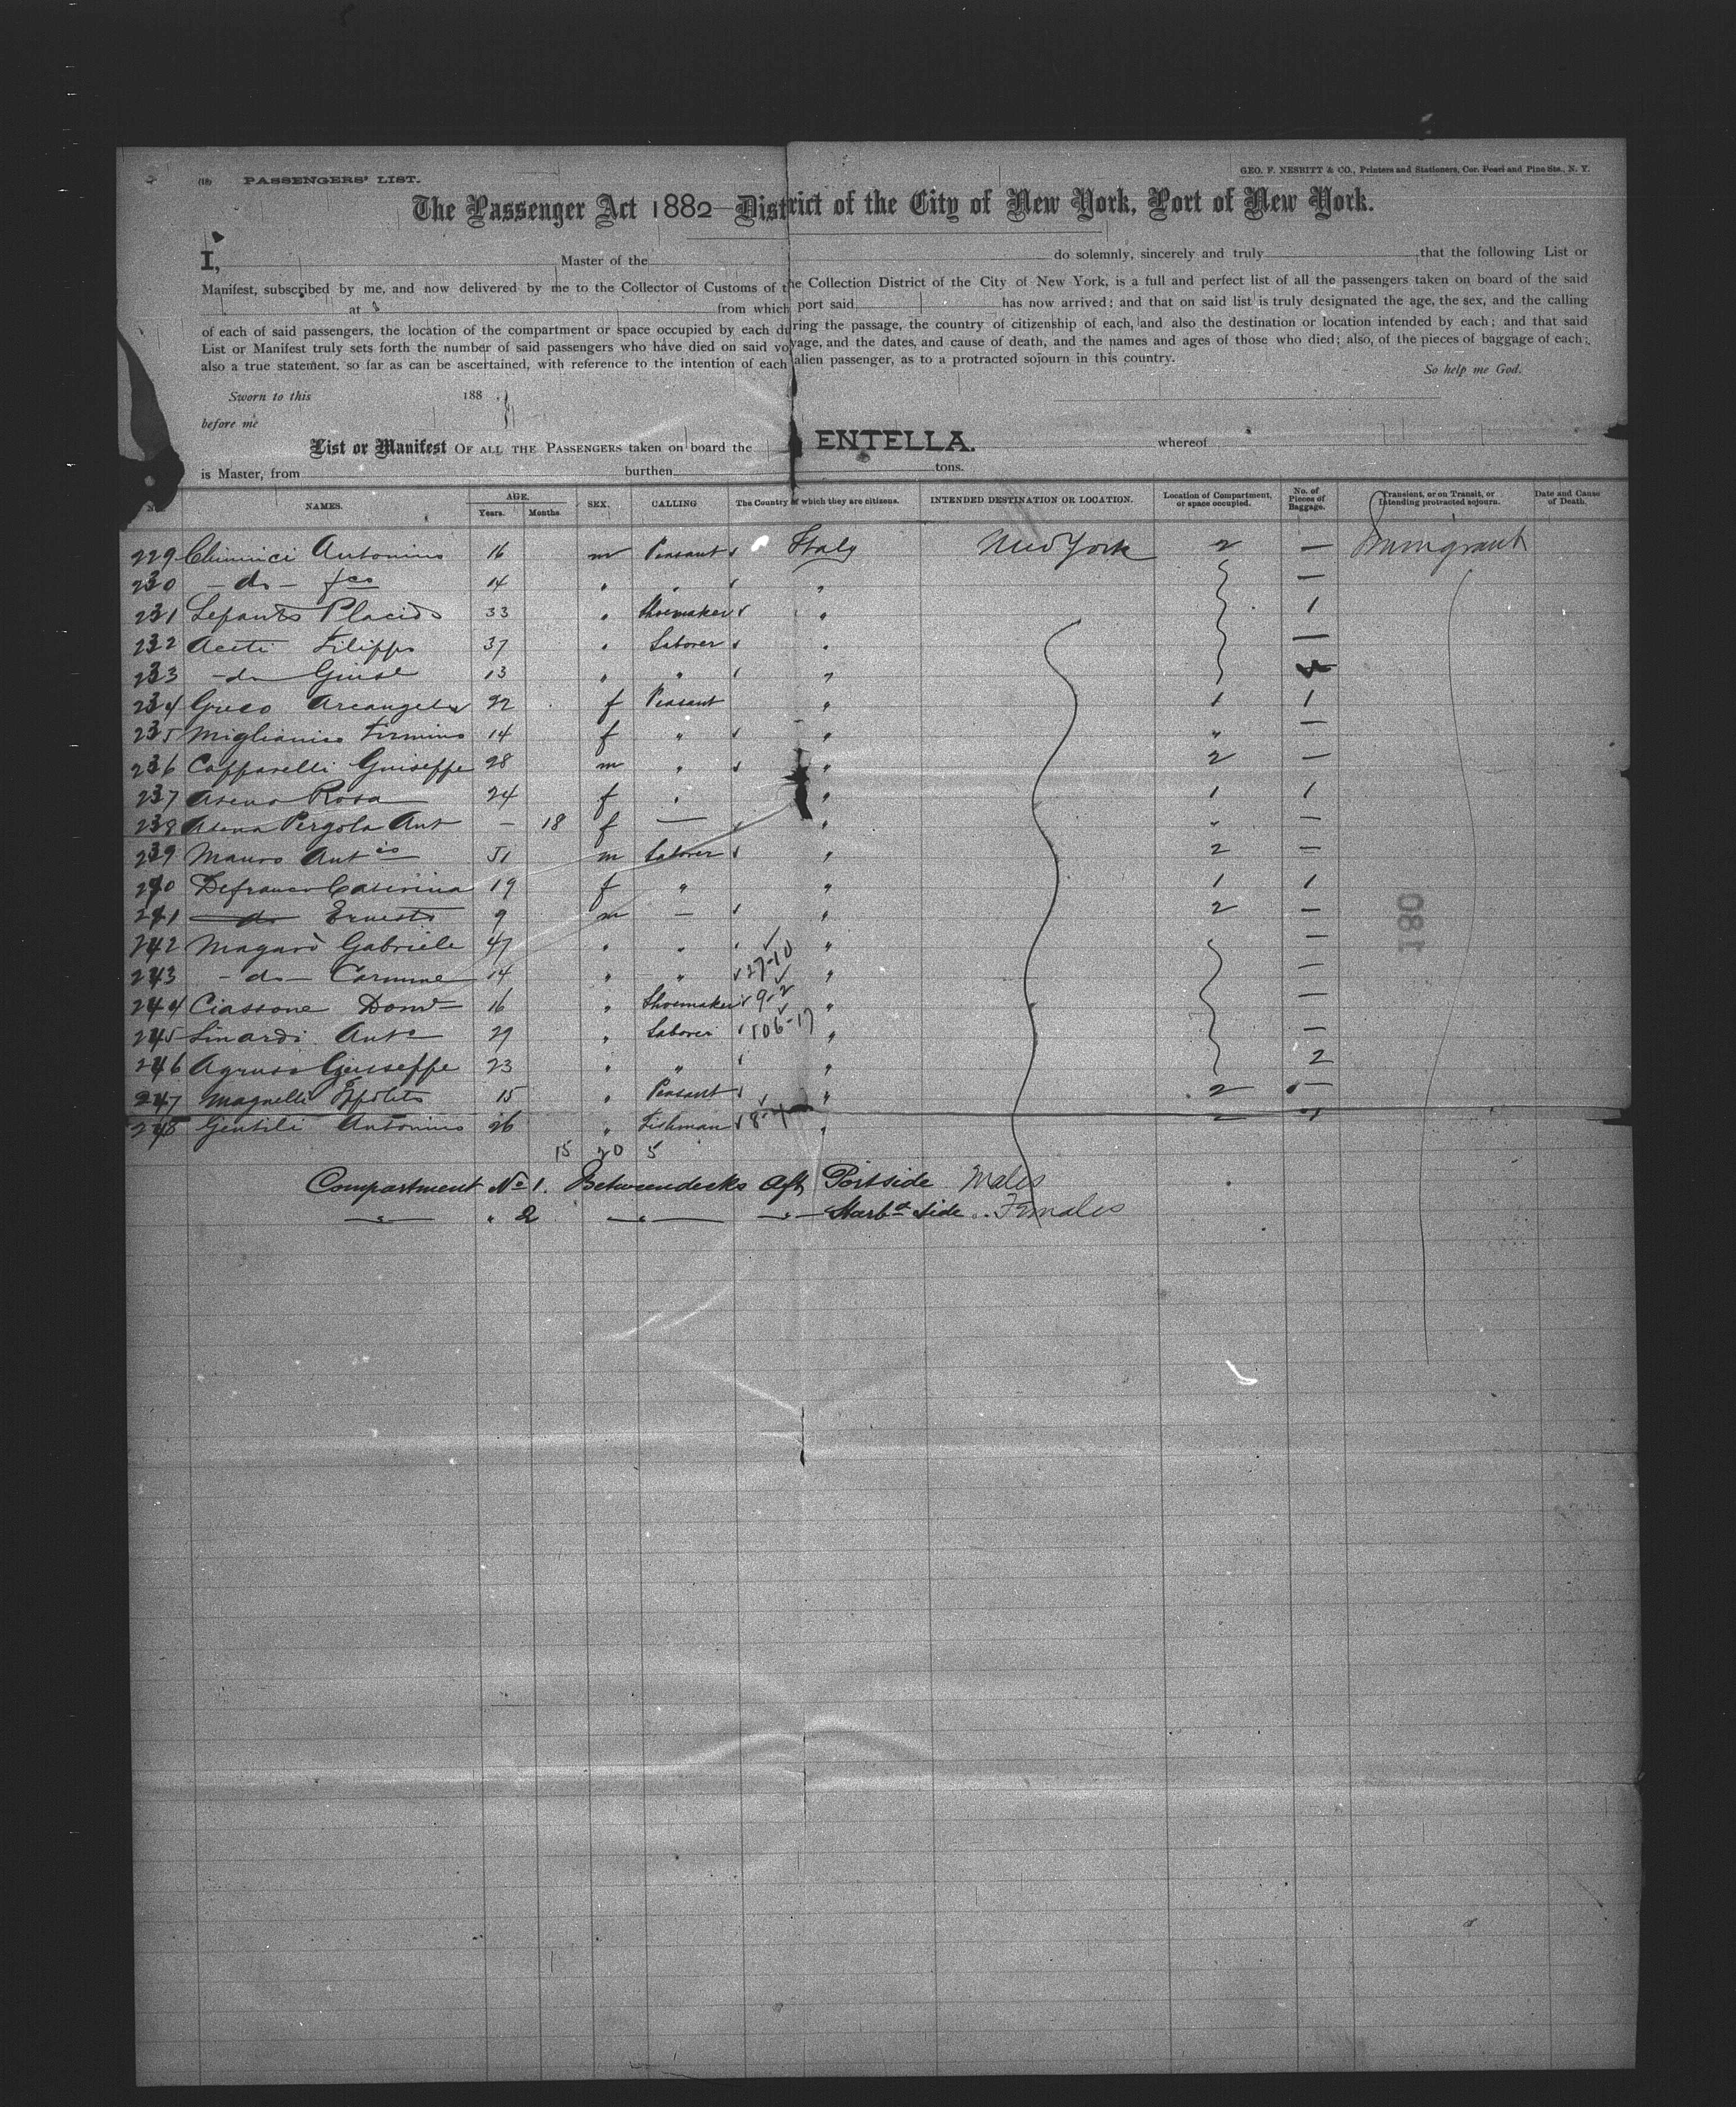 (18) PASSENGERS' LIST.
GEO. F. NESBITT & CO., Printers and Stationers, Cor. Pearl and Pine Sts., N. Y.
The Passenger Act 1882 District of the City of New York, Port of New York.
I, Master of the do solemnly, sincerely and truly that the following List or
Manifest, subscribed by me, and now delivered by me to the Collector of Customs of the Collection District of the City of New York, is a full and perfect list of all the passengers taken on board of the said
at from which port said has now arrived; and that on said list is truly designated the age, the sex, and the calling
of each of said passengers, the location of the compartment or space occupied by each during the passage, the country of citizenship of each, and also the destination or location intended by each; and that said
List or Manifest truly sets forth the number of said passengers who have died on said voyage, and the dates, and cause of death, and the names and ages of those who died; also, of the pieces of baggage of each;
also a true statement, so far as can be ascertained, with reference to the intention of each alien passenger, as to a protracted sojourn in this country. So help me God.
Sworn to this 188
before me
List or Manifest OF ALL THE PASSENGERS taken on board the ENTELLA. whereof
is Master, from burthen tons.
NAMES. AGE. Years. Months SEX. CALLING The Country of which they are citizens. INTENDED DESTINATION OR LOCATION. Location of Compartment, or space occupied. No. of Pieces of Baggage. Transient, or on Transit, or Intending protracted sojourn. Date and Cause of Death.
229 Chimici Antonino 16 m Peasant Italy New York 2 — Immigrant
230 - do - fco 14 " " " —
231 Lepanto Placido 33 " Shoemaker " 1
232 Aceti Filippo 37 " Laborer " —
233 - do Giuse 13 " " "
234 Greco Arcangela 22 f Peasant " 1 1
235 Miglianico Firmino 14 f " " " —
236 Capparelli Guiseppe 28 m " " 2 —
237 Asena Rosa 24 f " " 1 1
238 Asena Pergola Ant — 18 f — " " —
239 Mauro Antio 51 m Laborer " 2 —
240 Defranco Caterina 19 f " " 1 1
241 do Ernesto 9 m — " 2 —
242 Magarò Gabriele 47 " " " —
243 - do - Carmine 14 " " 27-10 " —
244 Ciassone Domo 16 " Shoemaker 9-2 " —
245 Linardi Anto 29 " Laborer 106-17 " —
246 Agruso Giuseppe 23 " " " 2
247 Magnelli Ippolito 15 " Peasant " 2 —
248 Gentili Antonino 26 " Fishman 8-4 " 2
15 20 5
Compartment No 1. Betweendecks Aft Portside Males
" " 2 " " Starbd side .. Females
180